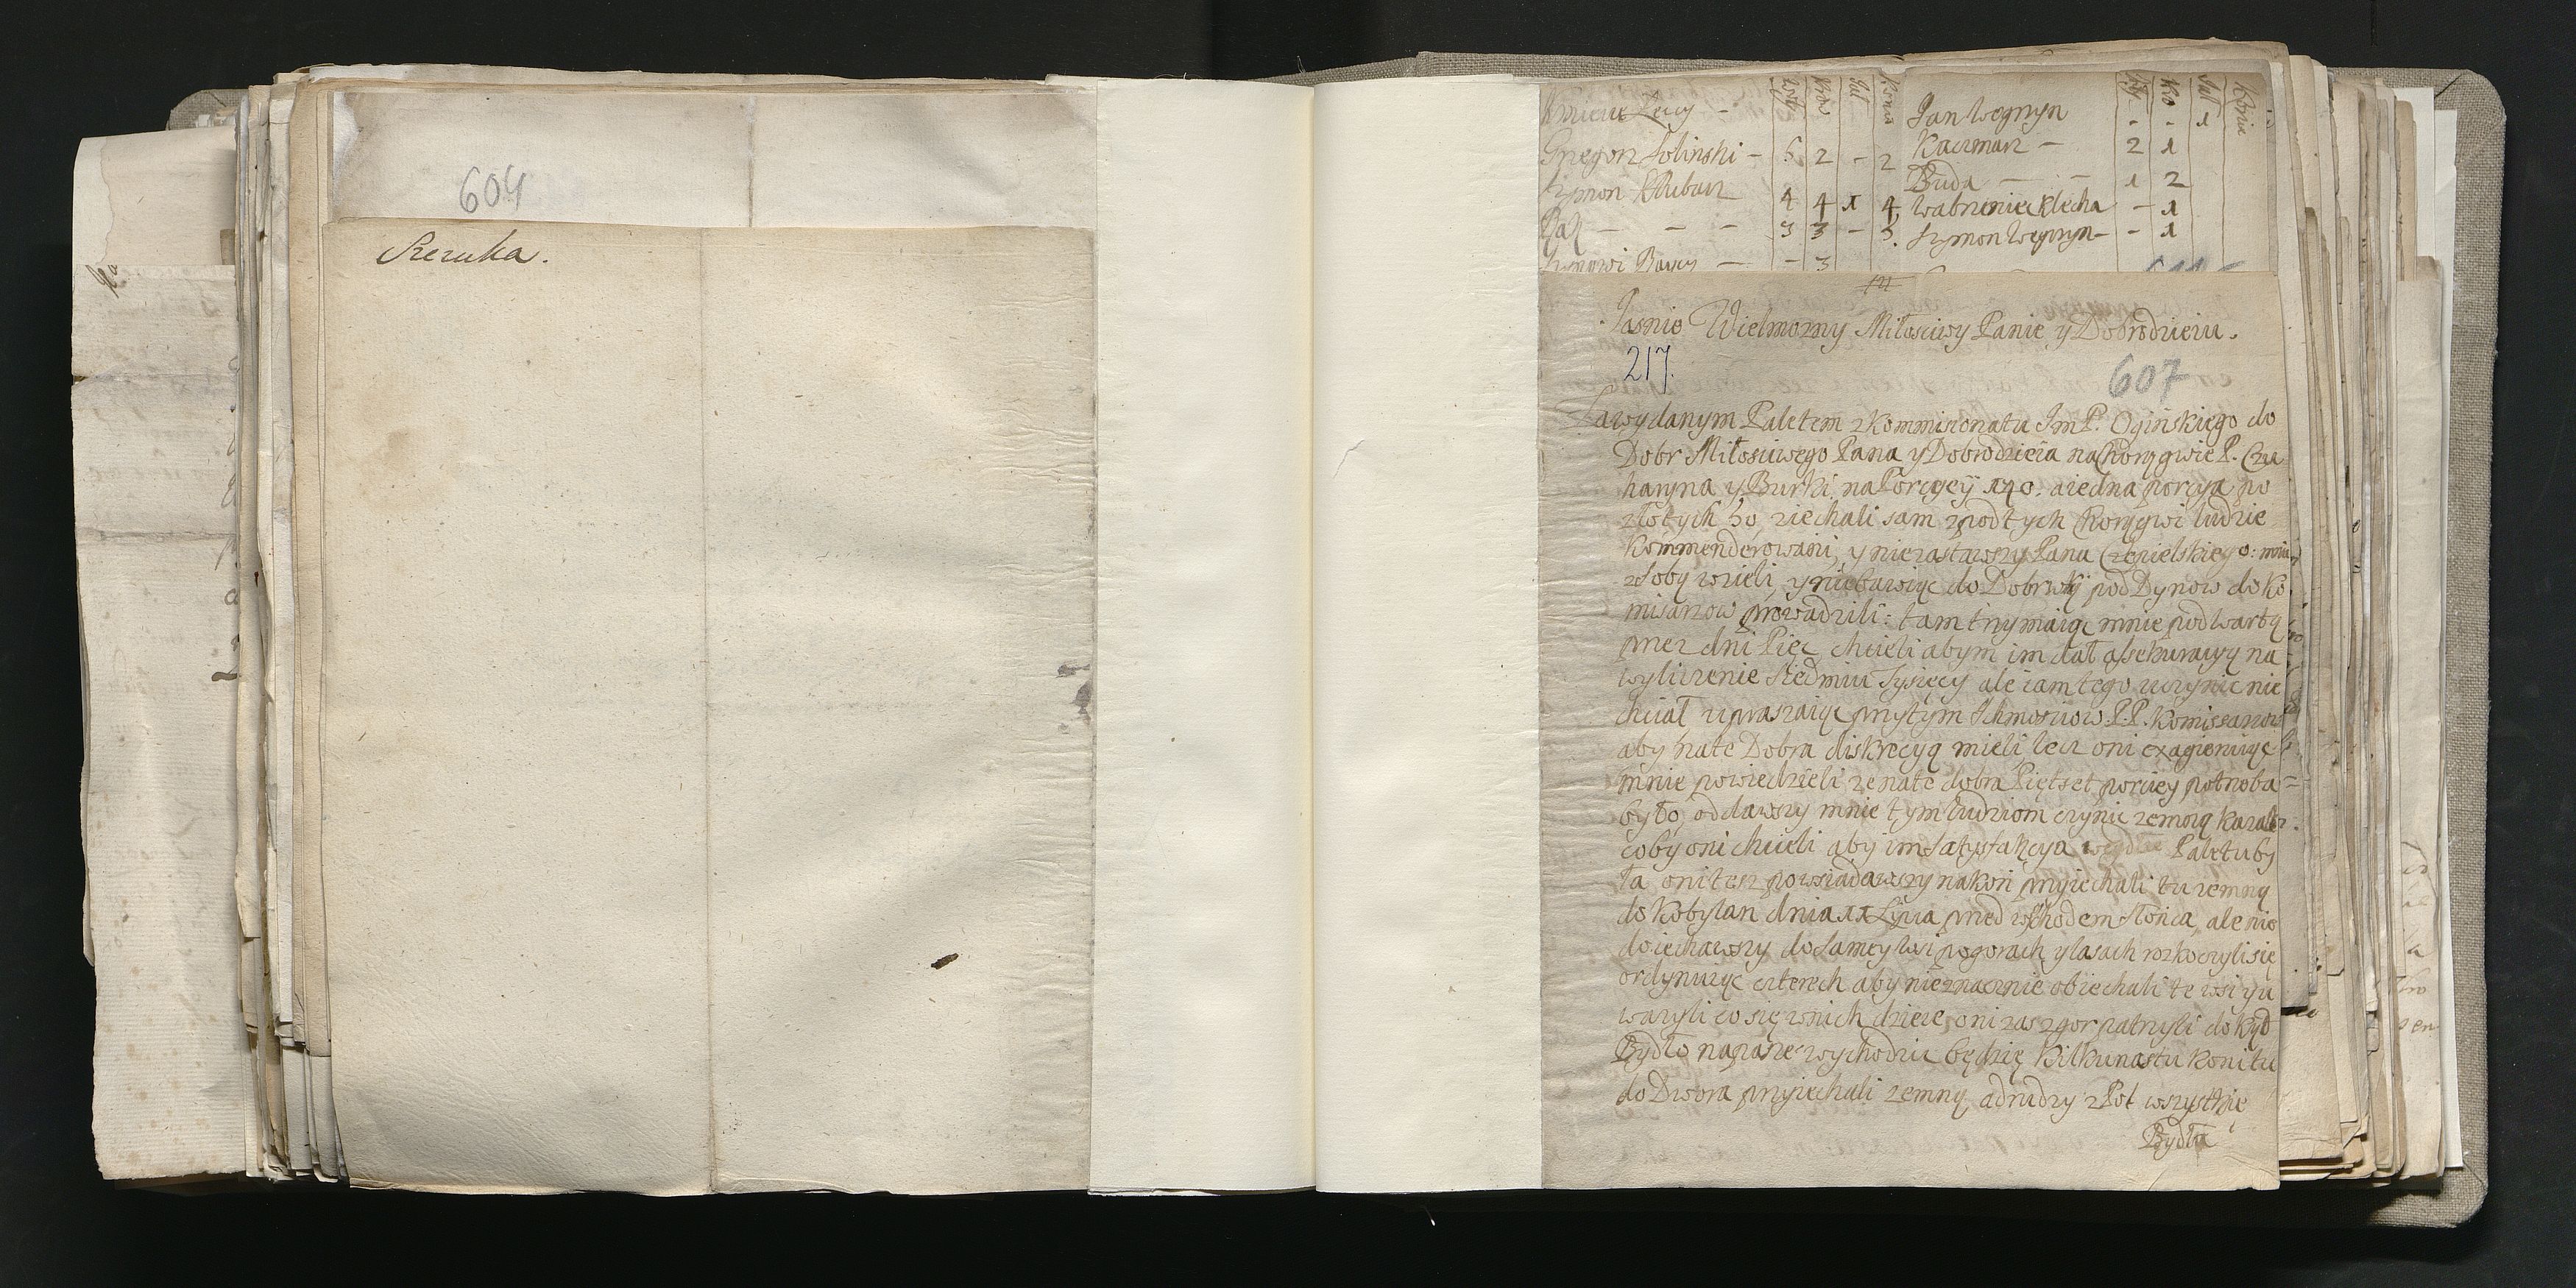 604
Szczuka.
Woły Krow Jał Konie
Gregorz Soliński – 5 2 – 2
Szymon 4 4 1 4
Bąk – – – 3 3 – 3
– 3
Woły Kro Jał Konie
Jan Węgrzyn - - 1
Kaczmarz – 2 1
Buda – – 1 2
Wawrzeniec Klecha – 1
Szymon Węgrzyn – – 1
Jasnie Wielmozny Miłosciwy Panie y Dobrodzieiu.
217.
607
Zawydanym Paletem z Kommissonatu Jm P. Oginskiego do
Dobr Miłosciwego Pana y Dobrodzieia na Chorągwie P. Czu
haryna y Burki na Porcyey 140. a iedna porcya po
złotych 50, ziechali sam zpod tych Chorągwi ludzie
kommenderowani, y niezastawszy Pana Czepielskiego: mnie
z sobą wzieli, y niebawiąc do Dobrwki pod Dynow do Ko
misarzow prowadzili: tam trzymaiąc mnie pod wartą
przez dni Pięc chcieli abym im dał assekuracyą na
wyliczenie Siedmiu Tysięcy ale iam tego uczynic nie
chciał upraszaiąc przytym Ichmosciow P.P. Komissarzow
aby na te Dobra diskrecyą mieli lecz oni exagieruiąc
mnie powiedzieli ze na te dobra Piętset porciey potrzeba
było, oddawszy mnie tym ludziom czynic zemną kazali
coby oni chcieli aby im Satysfakcya Paletu by
ła oni tez powsiadawszy na kon przyiechali tu zemną
do Kobylan dnia 11 Lipca przed wschodem słonca, ale nie
doiechawszy do samey wsi po gorach y lasach rozkoczyli się
ordynuiąc czterech aby nieznacznie obiechali te wsi y u
wazyli co się w nich dzieie, oni zas z gor patrzyli dokąd
Bydło na pasze wychodzic będzie, Kilkunastu koni tu
do Dwora przyiechali zemną, a drudzy z Pol wszystkie
Bydła